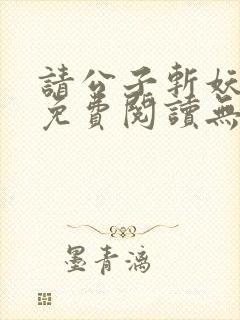 請公子斬妖
免費閱讀無
墨青漓